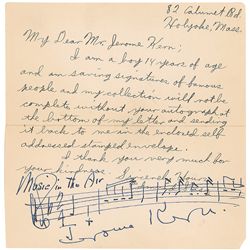 82 Calumet Rd.
Holyoke, Mass.
My Dear Mr. Jerome Kern;
I am a boy 14 years of age
and am saving signatures of famous
people and my collection will not be
complete without your autograph at
the bottom of my letter and sending
it back to me in the enclosed self-
addressed stamped envelope.
I thank you very much for
your kindness.
Sincerely Yours
Music in The Air
Jerome Kern